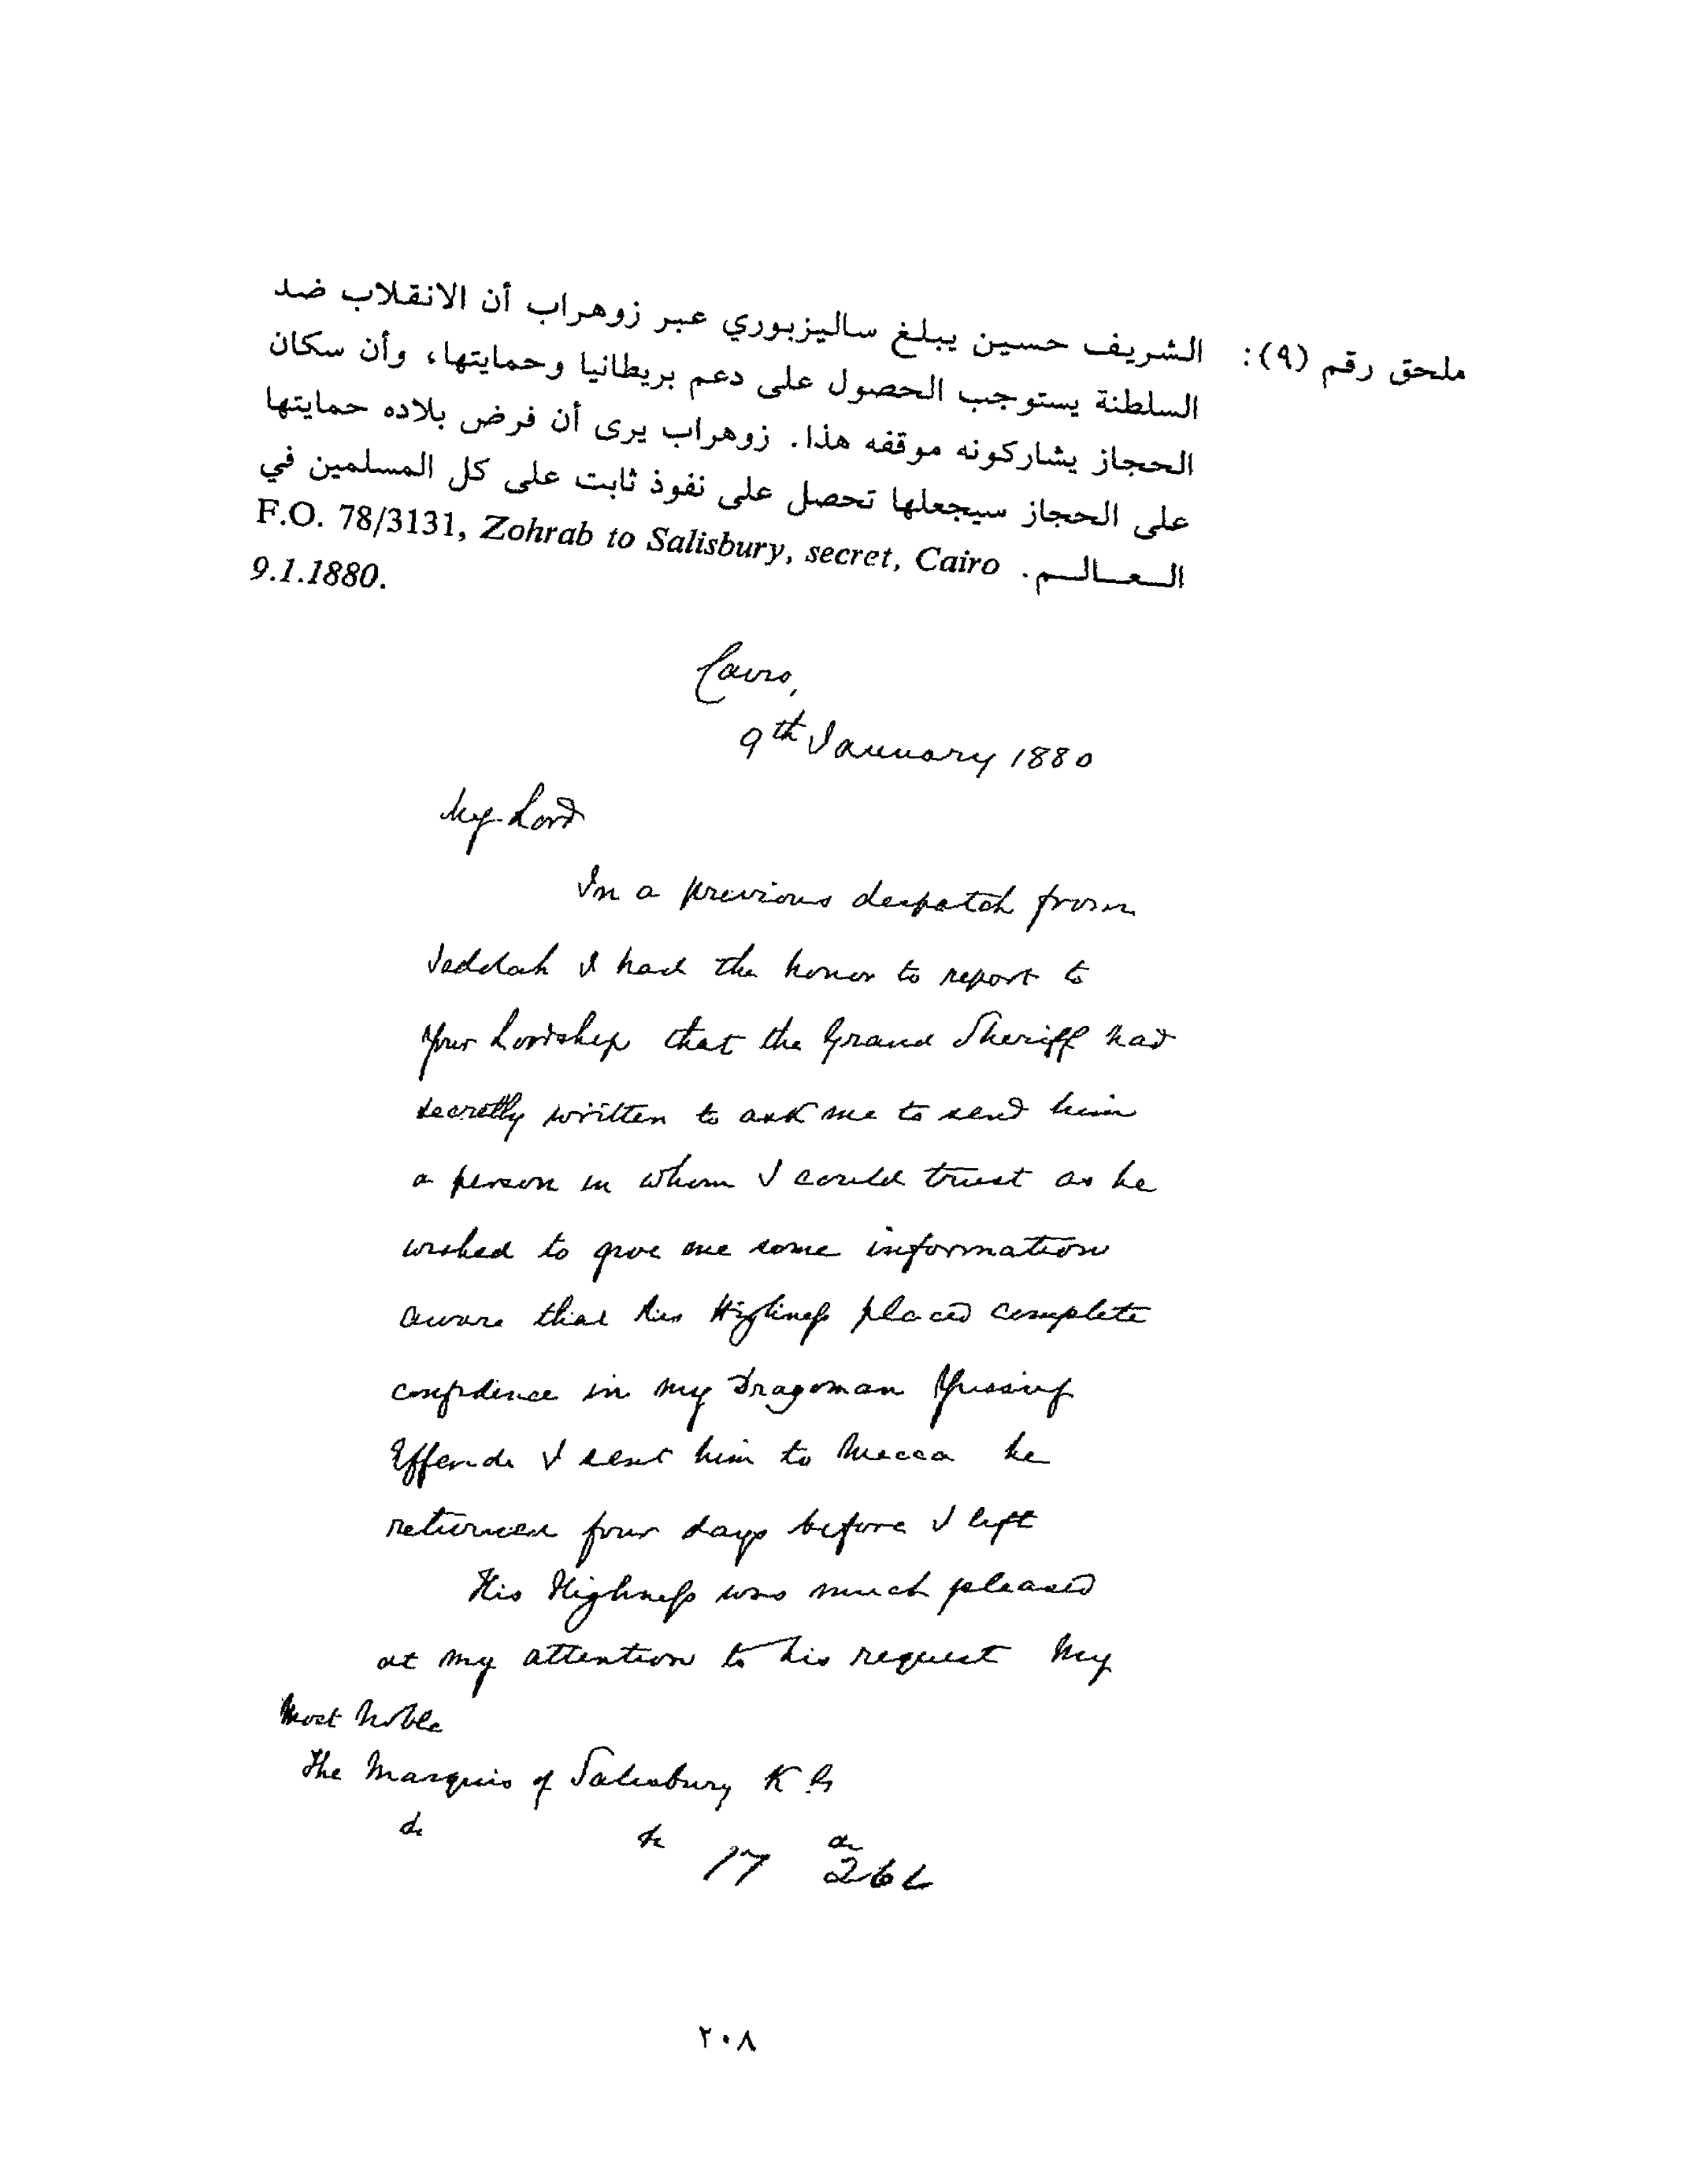 ملحق رقم (٩): الشريف حسين يبلغ ساليزبوري عبر زوهراب أن الانقلاب ضد
السلطنة يستوجب الحصول على دعم بريطانيا وحمايتها، وأن سكان
الحجاز يشاركونه موقفه هذا. زوهراب يرى أن فرض بلاده حمايتها
على الحجاز سيجعلها تحصل على نفوذ ثابت على كل المسلمين في
العالم. F.O. 78/3131, Zohrab to Salisbury, secret, Cairo
9.1.1880.
Cairo,
9th January 1880
My Lord
In a previous despatch from
Jeddah I had the honor to report to
Your Lordship that the Grand Sheriff had
secretly written to ask me to send him
a person in whom I could trust as he
wished to give me some information
aware that His Highness placed complete
confidence in my Dragoman Yussuf
Effendi I sent him to Mecca he
returned four days before I left
His Highness was much pleased
at my attention to his request My
Most Noble
The Marquis of Salisbury K G
&c &c &c
17 26
٢٠٨